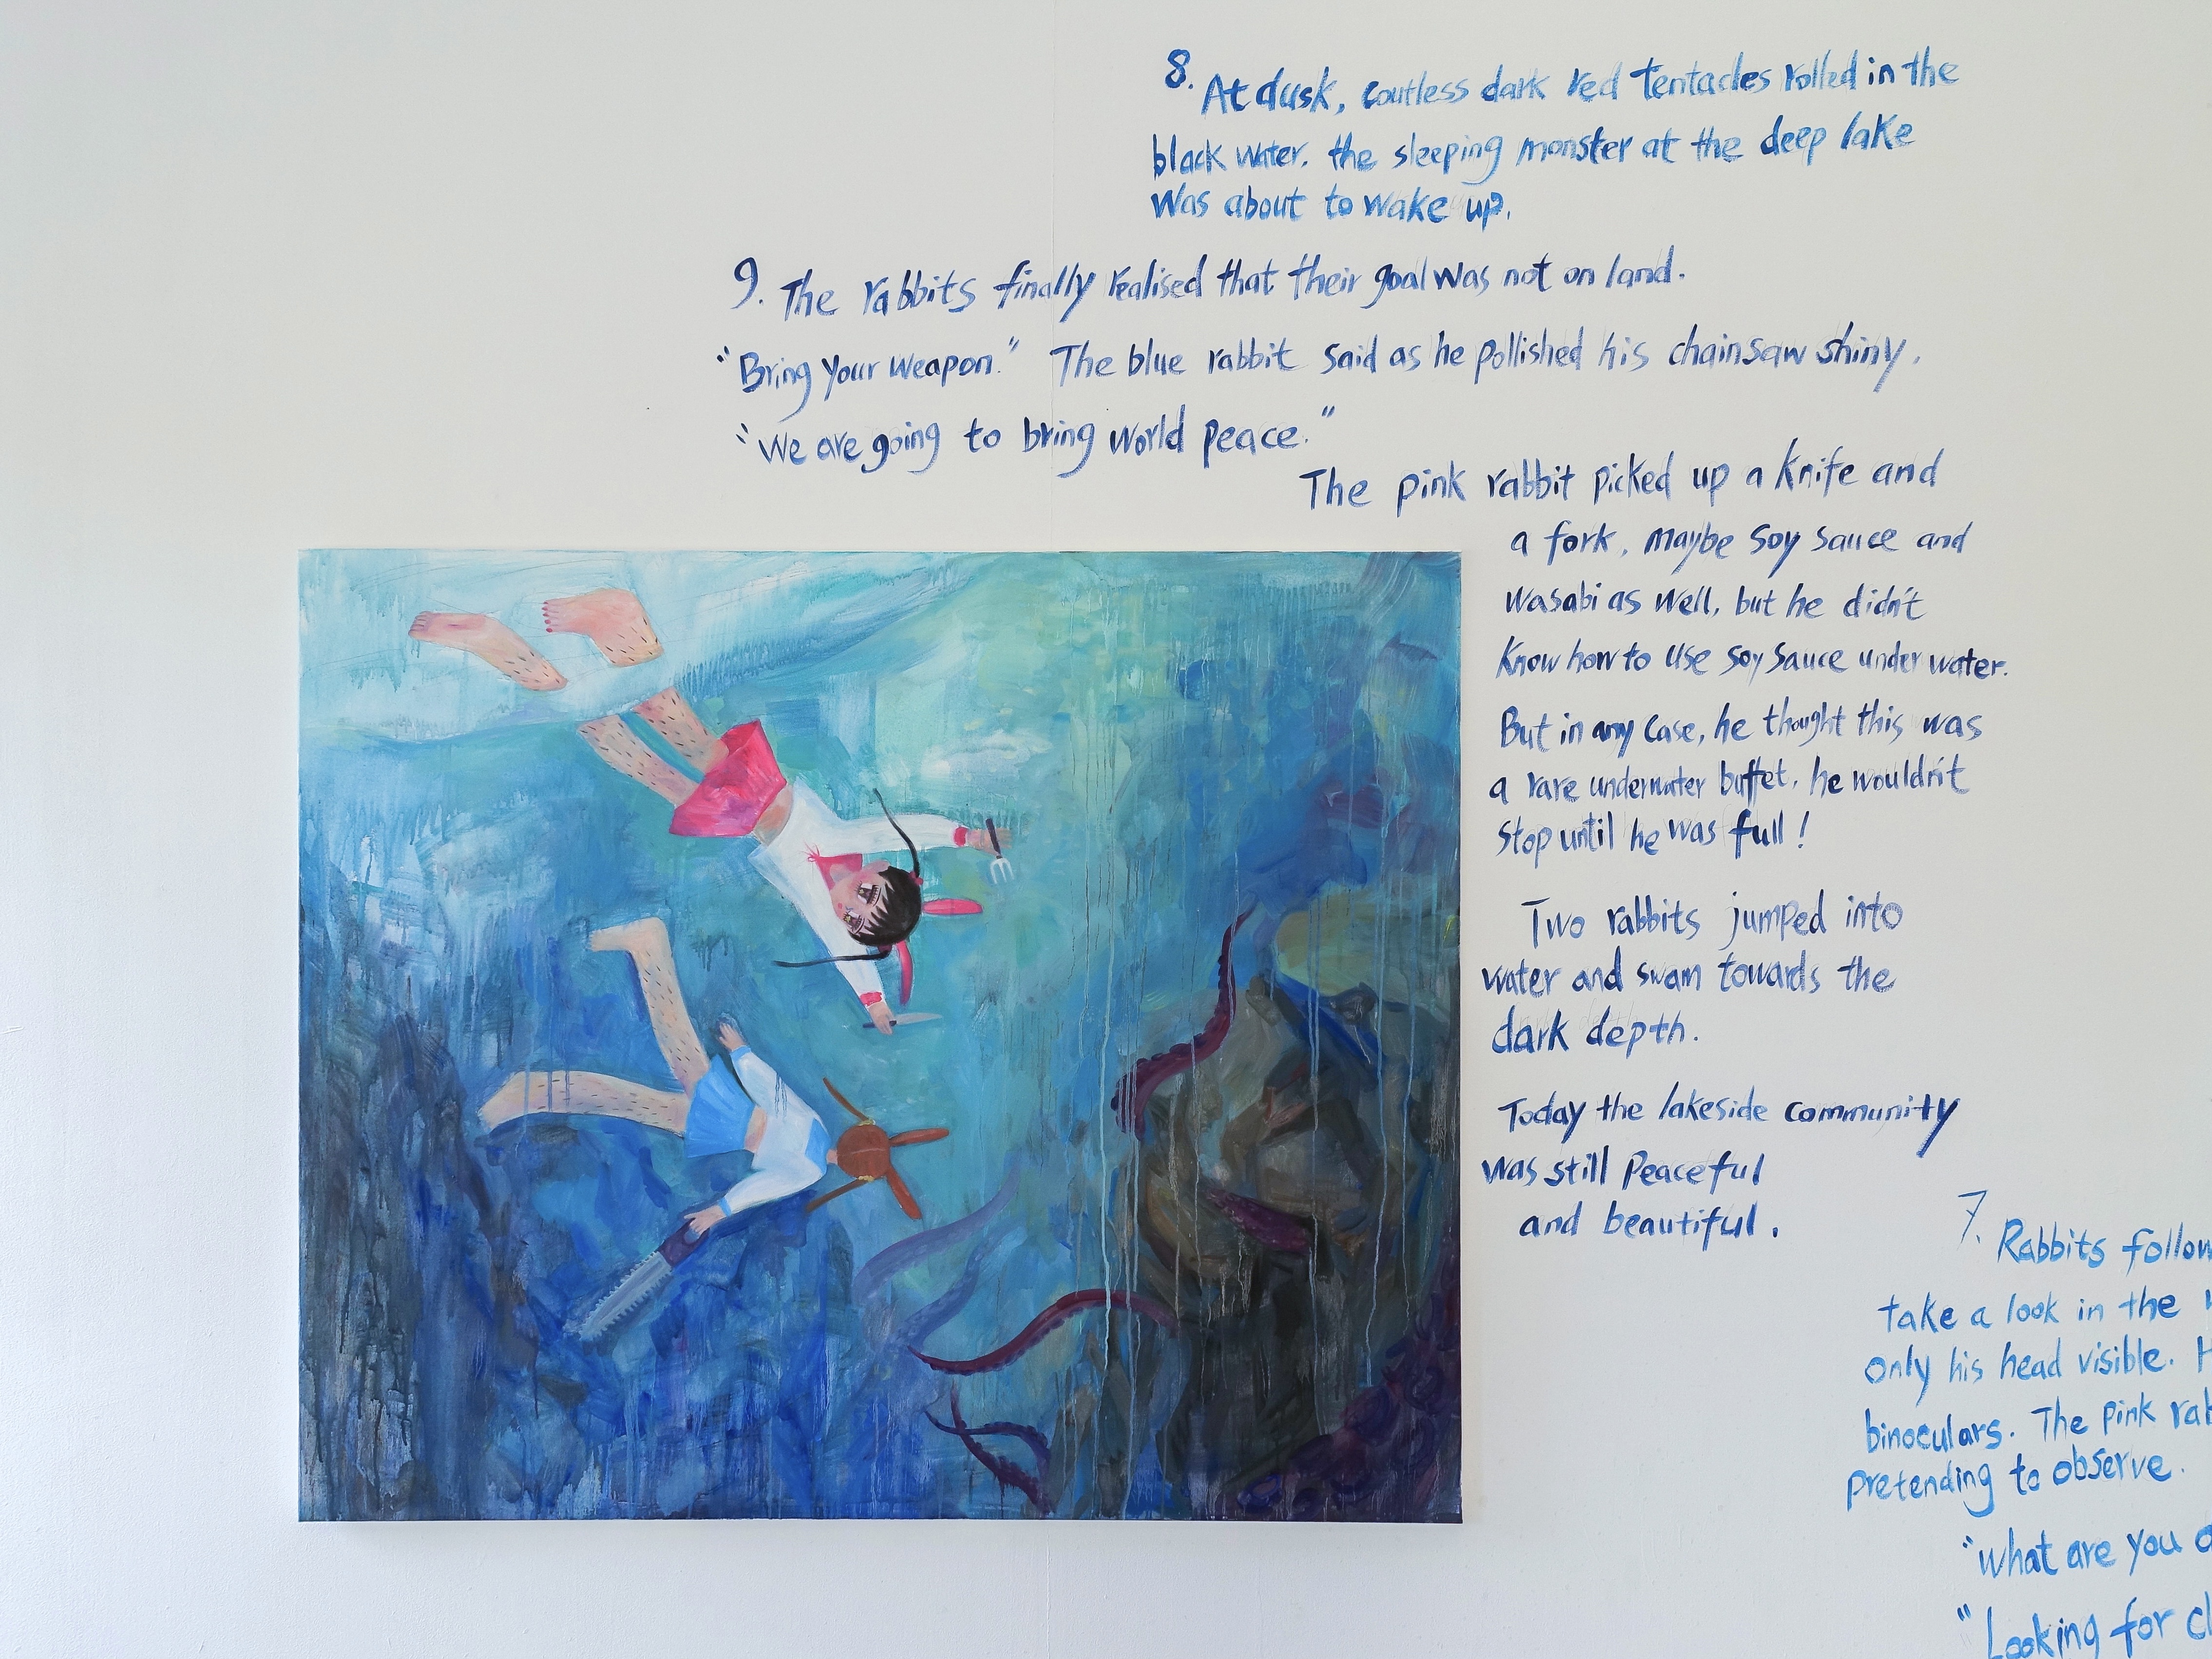 8. At dusk, coutless dark red tentacles rolled in the
black water. the sleeping monster at the deep lake
was about to wake up.
9. The rabbits finally realised that their goal was not on land.
"Bring your weapon." The blue rabbit said as he pollished his chainsaw shiny.
"We are going to bring world peace."
The pink rabbit picked up a knife and
a fork, maybe soy sauce and
wasabi as well, but he didn't
know how to use soy sauce under water.
But in any case, he thought this was
a rare underwater buffet. he wouldn't
stop until he was full!
Two rabbits jumped into
water and swam towards the
dark depth.
Today the lakeside community
was still peaceful
and beautiful.
7. Rabbits follow
take a look in the
only his head visible.
binoculars. The pink
pretending to observe.
"what are you
"Looking for